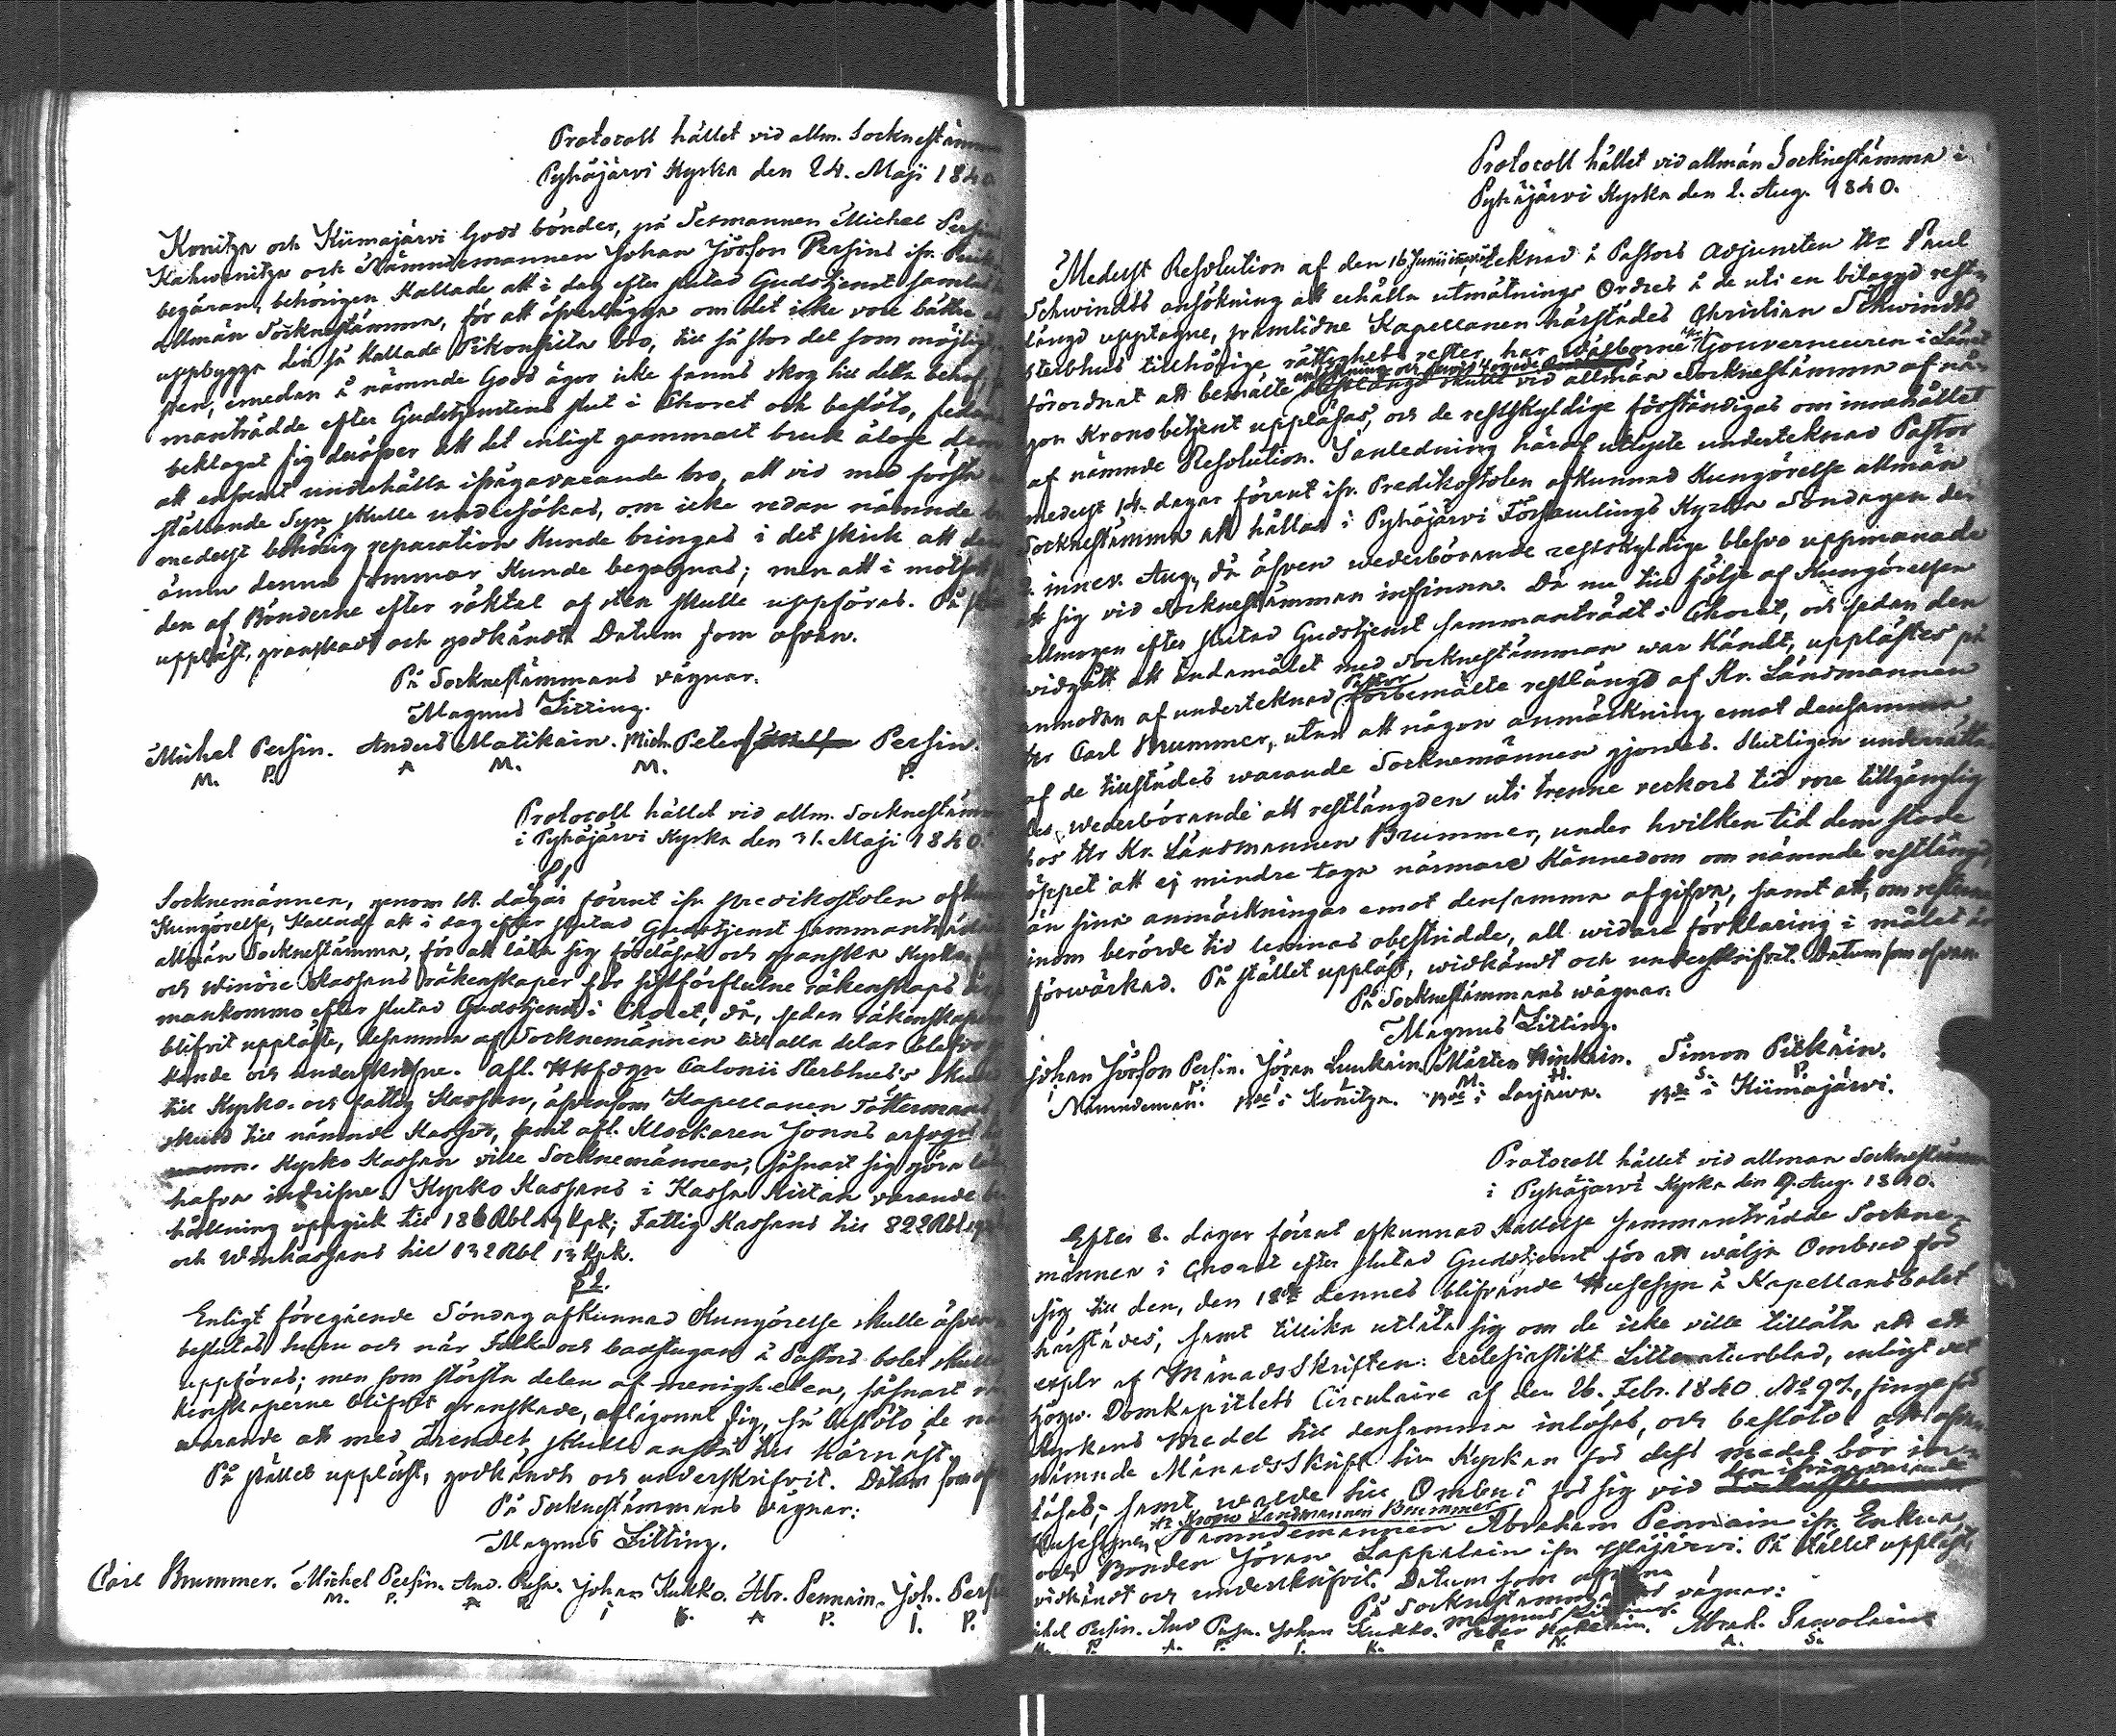 Protocoll hållet vid allm. Socknestämm
Pyhäjärvi Kyrka den 24. Maji 1840
Konitza och Kiimajärvi Gods bönder, på Sexmannen Michel Persin
Kahwenitza och Nämndemannen Johan Jörsson Persins ifr.
begäran, behörigen Kallade att i dag efter slutad Gudstjenst samlas
allmän Socknestämma, för att öfverlägga om det icke vore bättre
uppbygga den så Kallade Pikonsilta bro, till så stor del som möjligt
sten, emedan å nämnde Gods ägor icke fanns skog till detta behof,
manträdde efter Gudstjenstens slut i Choret och beslöto, sedan
beklagat sig deröfver att det enligt gammalt bruk ålåge dem
att ensamt underhålla ifrågavarande bro, att vid med första
ställande Syn skulle undersökas, om icke redan nämnde
medelst behörig reparation Kunde bringas i det skick att den
ännu denna sommar Kunde begagnas; men att i motsatt
den af Bönderne efter röktal af sten skulle uppföras. På
uppläst, granskadt och godkändt. Datum som ofvan.
På Socknestämmans vägnar.
Magnus Litting.
Michel Persin. Anders Matikain. Mich. Peters Persin.
M. P. A M. M. P.
Protocoll hållet vid allm. Socknestämm
i Pyhäjärvi Kyrka den 31. Maji 1840.
§ 1.
Socknemännen, genom 14. dagar förrut ifr. predikostolen afkun
Kungörelse, Kallade att i dag efter slutad Gudstjenst sammanträda
allmän Socknestämma, för att låta sig föreläsas och granska Kyrko
och Winöre Kassans räkenskaper för sistförflutne räkenskaps
mankommo efter slutad Gudstjenst i Choret, då, sedan räkenskaperne
blifvit uppläste, desamma af Socknemännen till alla delar blefvo
kände och underskrifne. Afl. Calonii Sterbhus's skuld
till Kyrko- och fattig Kassan, äfvensom Kapellanen Töttermans
skuld till nämnde Kassor, samt afl. Klockaren Jonns arfvegn
Kyrko Kassan ville Socknemännen, såsnart sig göra låter
hafva indrifne. Kyrko Kassans i Kassa Kistan varande
hållning uppgick till 186 Rbl 49 Kpk; Fattig Kassans till 822 Rbl
och Winkassans till 132 Rbl 13 Kpk.
§ 2.
Enligt föregående Söndag afkunnad Kungörelse skulle äfven
beslutas huru och när Folk- och badstugan å Pastors bolet skulle
uppföras; men som största delen af menigheten, såsnart rä
kenskaperne blifvit granskade, aflägsnat sig, så beslöto de när
warande att med ärendet skulle anstå till härnäst.
På stället uppläst, godkändt och underskrifvit. Datum som of
På Socknestämmans vägnar:
Magnus Litting.
Carl Brummer. Michel Persin. And. Persn. Johan Kukko. Abr. Pennain. Joh. Persin
M. P. A P. i K. A P. I. P.
Protocoll hållet vid allmän Socknestämma i
Pyhäjärvi Kyrka den 2. Aug. 1840.
Medelst Resolution af den 16 Junii innev. år, teknad å Pastors Adjuncten Hr Paul
Schwindts ansökning att erhålla utmätnings Ordres å de uti en bilaggd rest-
längd upptagne, framlidne Kapellanen härstädes Christian Schwindts
sterbhus tillhörige, rättighets rester, har Wälborne Hr Gouverneuren i Länet
förordnat att bemälte ansökning och restlängd skulle vid allmän Socknestämma af nå-
gon Kronobetjent uppläsas, och de restskyldige förständigas om innehållet
af nämnde Resolution. I anledning häraf utlyste underteknad Pastor
medelst 14. dagar förrut ifr. Predikostolen afkunnad Kungörelse allmän
Socknestämma att hållas i Pyhäjärvi Församlings Kyrka Söndagen den
2. innev. Aug., då äfven wederbörande restskyldige blefvo uppmanade
att sig vid Socknestämman infinna. Då nu till följe af Kungörelsen
allmogen efter slutad Gudstjenst sammanträdt i Choret, och sedan den
widgått att ändamålet med Socknestämman war Kändt, upplästes på
anmodan af underteknad Pastor förbemälte restlängd af Kr. Länsmannen
Hr Carl Brummer, utan att någon anmärkning emot densamma
af de tillstädes warande Socknemännen gjordes. Slutligen underrätta-
des wederbörande att restlängden uti trenne veckors tid vore tillgänglig
hos Hr Kr. Länsmannen Brummer, under hvilken tid dem stode
öppet att ej mindre taga närmare Kännedom om nämnde restlängd,
än sina anmärkningar emot densamma afgifva, samt att, om resterne
inom berörde tid lemnas obestridde, all widare förklaring i målet är
förwärkad. På stället uppläst, widkändt och underskrifvit. Datum som ofvan
På Socknestämmans wägnar:
Magnus Litting.
Johan Jörsson Persin. Jöran Luukain. Mårten Hinkain. Simon Pitkäin.
P. L. M. H. S. P.
Nämndeman. Bde i Konitza. Bde i Larjawa. Bde i Kiimajärvi.
Protocoll hållet vid allmän Socknestämm
i Pyhäjärvi Kyrka den 9. Aug. 1840.
Efter 8. dagar förrut afkunnad Kallelse sammanträdde Sockne-
männen i Choret efter slutad Gudstjenst för att wälja Ombud för
sig till den, den 18de dennes blifvande Husesyn å Kapellansbolet
härstädes, samt tillika utlåta sig om de icke ville tillåta att ett
explr af MånadsSkriften: Ecclesiastikt Litteraturblad, enligt vet
Högw. Domkapitlets Circulaire af den 26. Febr. 1840 No 97, finge för
Kyrkans Medel till densamma inlösas, och beslöto att ofvan
nämnde MånadsSkrift till Kyrkan för dess medel bör in-
lösas; samt walde till Ombud för sig vid den ifrågavarande
Husesynen Hr Krono Länsmannen Brummer Nämndemannen Abraham Pennain ifr. Enkua
och Bonden Jöran Lappalain ifr. Yläjärvi. På stället uppläst,
vidkändt och underskrifvit. Datum som ofvan
På Socknestämmans vägnar:
Magnus Litting.
Michel Persin. And Persn. Johan Kukko. Peter Abrah. Sawolain
P. A. P. I. K. P. A. S.